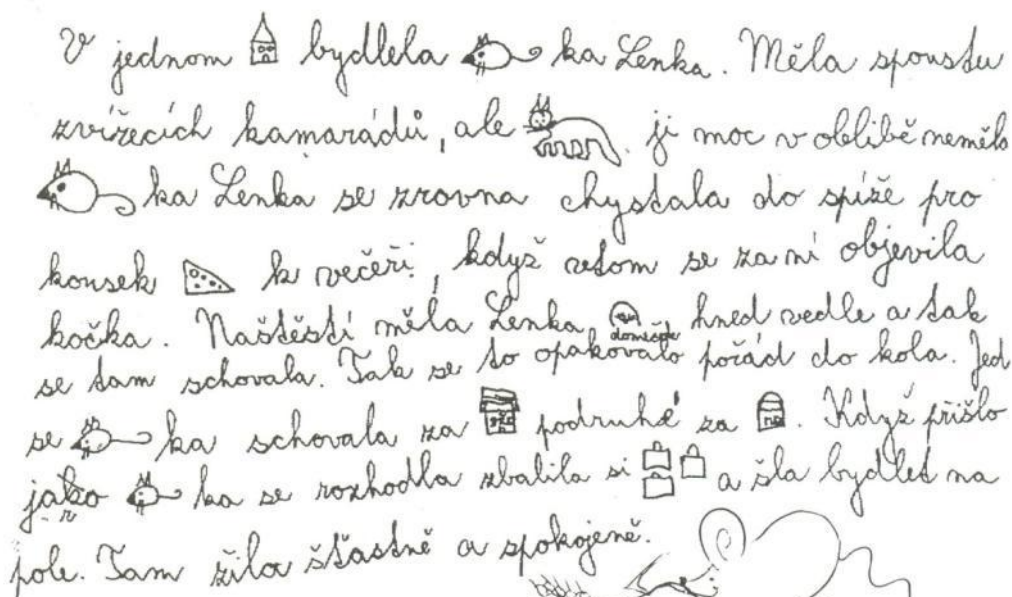 V jednom bydllela ka Lenka. Měla spoustu
zvířecích kamarádů, ale ji moc v oblibě neměla
ka Lenka se zrovna chystala do spíže pro
kousek k večeři, když vtom se za ní objevila
kočka. Naštěstí měla Lenka domeček hned vedle a tak
se tam schovala. Tak se to opakovalo pořád do kola. Jed
se ka schovala za podruhé za. Když přišlo
jako ka se rozhodla zbalila si a šla bydlet na
pole. Tam žila šťastně a spokojeně.